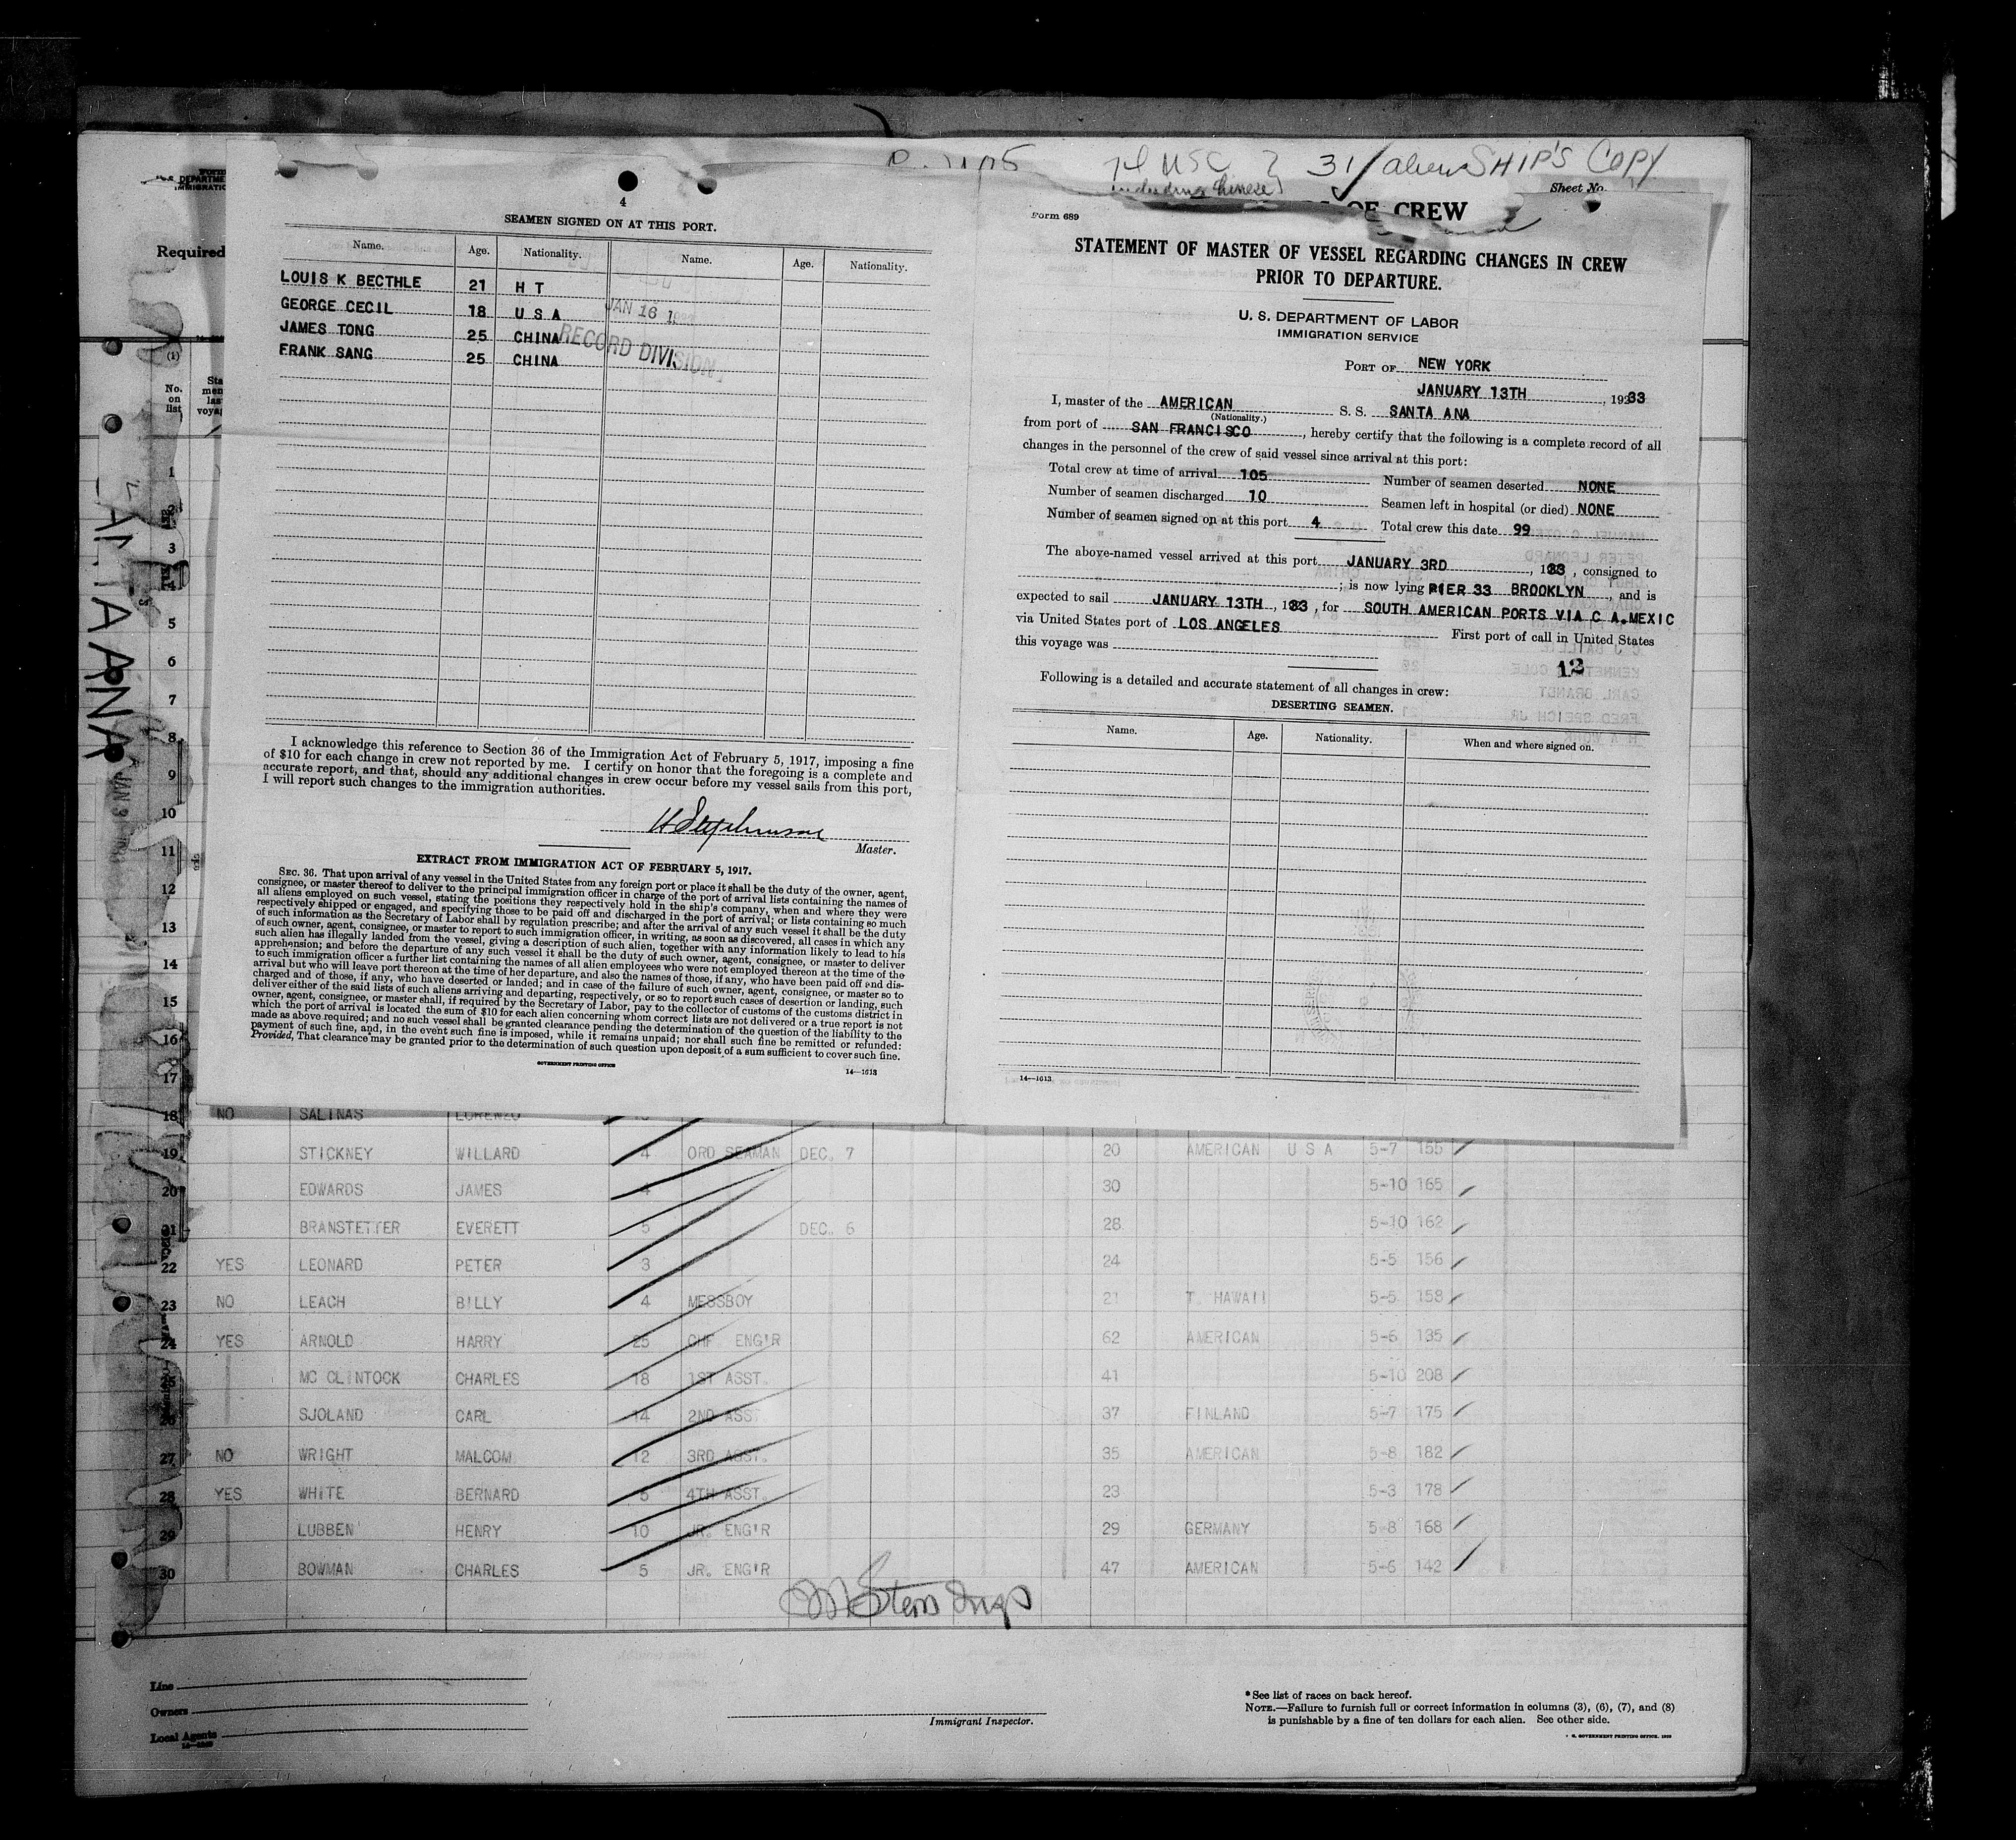 31 / aliens SHIP'S COPY
including Chinese
Sheet No.
OF CREW
Required
No. on list
SANTA ANA
4
SEAMEN SIGNED ON AT THIS PORT.
Name. Age. Nationality. Name. Age. Nationality.
LOUIS K BECTHLE 21 H T
GEORGE CECIL 18 U S A
JAMES TONG 25 CHINA
FRANK SANG 25 CHINA
JAN 16
RECORD DIVISION
I acknowledge this reference to Section 36 of the Immigration Act of February 5, 1917, imposing a fine
of $10 for each change in crew not reported by me. I certify on honor that the foregoing is a complete and
accurate report, and that, should any additional changes in crew occur before my vessel sails from this port,
I will report such changes to the immigration authorities.
Master.
EXTRACT FROM IMMIGRATION ACT OF FEBRUARY 5, 1917.
SEC. 36. That upon arrival of any vessel in the United States from any foreign port or place it shall be the duty of the owner, agent,
consignee, or master thereof to deliver to the principal immigration officer in charge of the port of arrival lists containing the names of
all aliens employed on such vessel, stating the positions they respectively hold in the ship's company, when and where they were
respectively shipped or engaged, and specifying those to be paid off and discharged in the port of arrival; or lists containing so much
of such information as the Secretary of Labor shall by regulation prescribe; and after the arrival of any such vessel it shall be the duty
of such owner, agent, consignee, or master to report to such immigration officer, in writing, as soon as discovered, all cases in which any
such alien has illegally landed from the vessel, giving a description of such alien, together with any information likely to lead to his
apprehension; and before the departure of any such vessel it shall be the duty of such owner, agent, consignee, or master to deliver
to such immigration officer a further list containing the names of all alien employees who were not employed thereon at the time of the
arrival but who will leave port thereon at the time of her departure, and also the names of those, if any, who have been paid off and dis-
charged and of those, if any, who have deserted or landed; and in case of the failure of such owner, agent, consignee, or master so to
deliver either of the said lists of such aliens arriving and departing, respectively, or so to report such cases of desertion or landing, such
owner, agent, consignee, or master shall, if required by the Secretary of Labor, pay to the collector of customs of the customs district in
which the port of arrival is located the sum of $10 for each alien concerning whom correct lists are not delivered or a true report is not
made as above required; and no such vessel shall be granted clearance pending the determination of the question of the liability to the
payment of such fine, and, in the event such fine is imposed, while it remains unpaid; nor shall such fine be remitted or refunded:
Provided, That clearance may be granted prior to the determination of such question upon deposit of a sum sufficient to cover such fine.
GOVERNMENT PRINTING OFFICE
14—1613
Form 689
STATEMENT OF MASTER OF VESSEL REGARDING CHANGES IN CREW
PRIOR TO DEPARTURE.
U. S. DEPARTMENT OF LABOR
IMMIGRATION SERVICE
PORT OF NEW YORK
JANUARY 13TH, 1933
I, master of the AMERICAN S. S. SANTA ANA
(Nationality.)
from port of SAN FRANCISCO, hereby certify that the following is a complete record of all
changes in the personnel of the crew of said vessel since arrival at this port:
Total crew at time of arrival 105 Number of seamen deserted NONE
Number of seamen discharged 10 Seamen left in hospital (or died) NONE
Number of seamen signed on at this port 4 Total crew this date 99
The above-named vessel arrived at this port JANUARY 3RD, 1933, consigned to
; is now lying PIER 33 BROOKLYN, and is
expected to sail JANUARY 13TH, 1933, for SOUTH AMERICAN PORTS VIA C A.MEXIC
via United States port of LOS ANGELES First port of call in United States
this voyage was
12
Following is a detailed and accurate statement of all changes in crew:
DESERTING SEAMEN.
Name. Age. Nationality. When and where signed on.
14—1613
1
2
3
5
6
7
8
9
10
11
12
13
14
15
16
17
18 NO SALINAS LORENZO
19 STICKNEY WILLARD 4 ORD SEAMAN DEC. 7 20 AMERICAN U S A 5-7 155
20 EDWARDS JAMES 4 30 5-10 165
21 BRANSTETTER EVERETT 5 DEC. 6 28 5-10 162
22 YES LEONARD PETER 3 24 5-5 156
23 NO LEACH BILLY 4 MESSBOY 21 T. HAWAII 5-5 158
24 YES ARNOLD HARRY 25 CHF ENG'R 62 AMERICAN 5-6 135
25 MC CLINTOCK CHARLES 18 1ST ASST. 41 5-10 208
26 SJOLAND CARL 14 2ND ASST 37 FINLAND 5-7 175
27 NO WRIGHT MALCOM 12 3RD ASST. 35 AMERICAN 5-8 182
28 YES WHITE BERNARD 5 4TH ASST. 23 5-3 178
29 LUBBEN HENRY 10 JR. ENG'R 29 GERMANY 5-8 168
30 BOWMAN CHARLES 5 JR. ENG'R 47 AMERICAN 5-6 142
Line
Owners
Local Agents
Immigrant Inspector.
*See list of races on back hereof.
NOTE.—Failure to furnish full or correct information in columns (3), (6), (7), and (8)
is punishable by a fine of ten dollars for each alien. See other side.